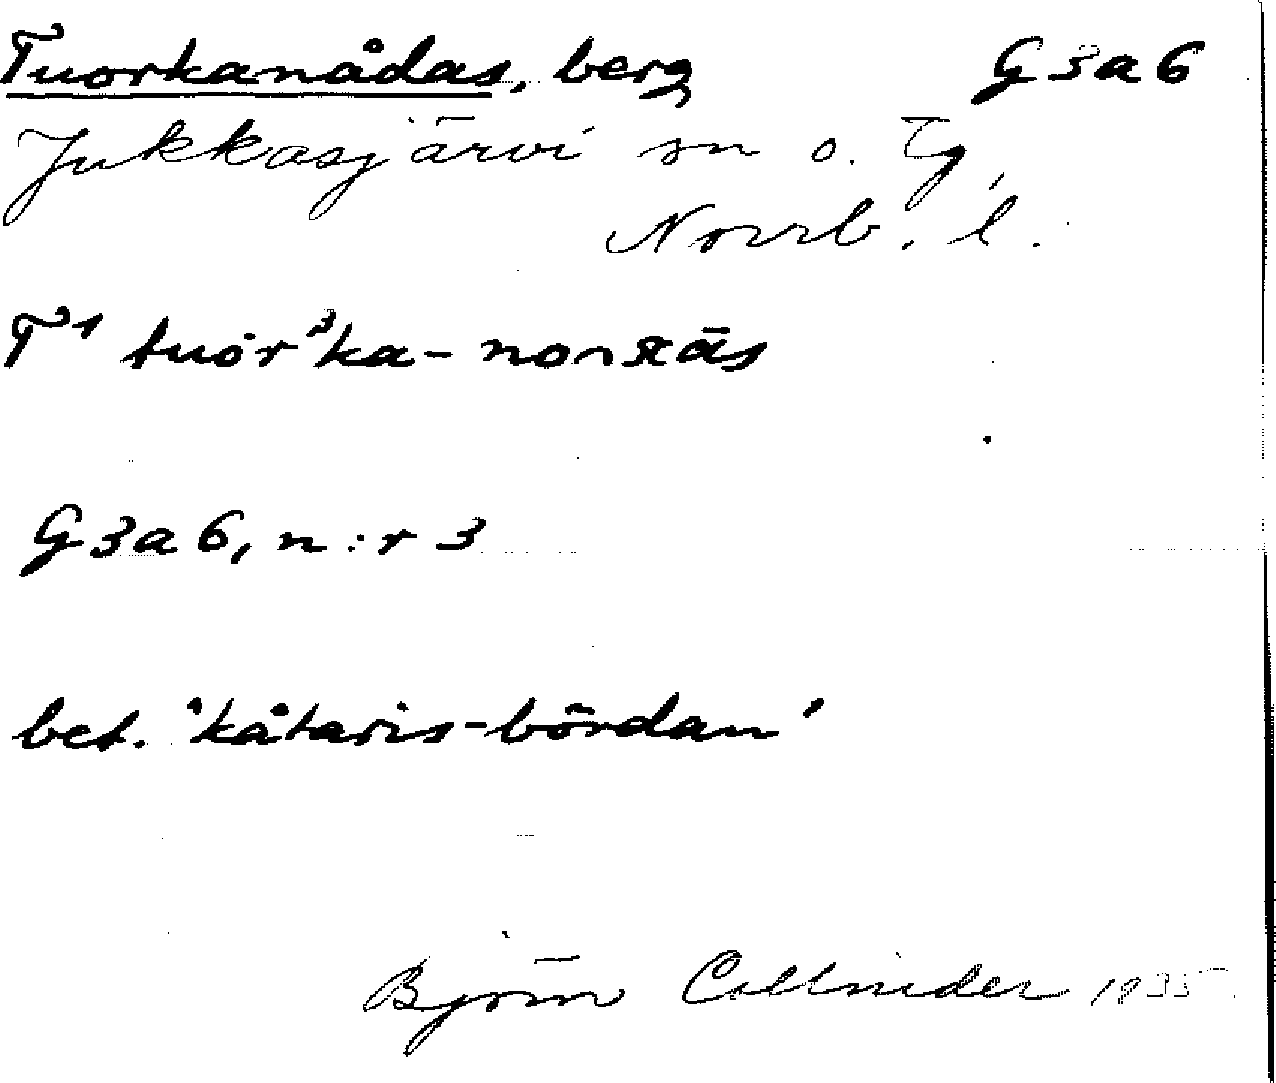 Tuorkanådas, berg G3a6
Jukkasjärvi sn o. Tg,
Norrb. l.
T¹ tuor³ka-
G3a6, n:r 3
bet. 'kåtaris-bördan'
Björn Collinder 1935